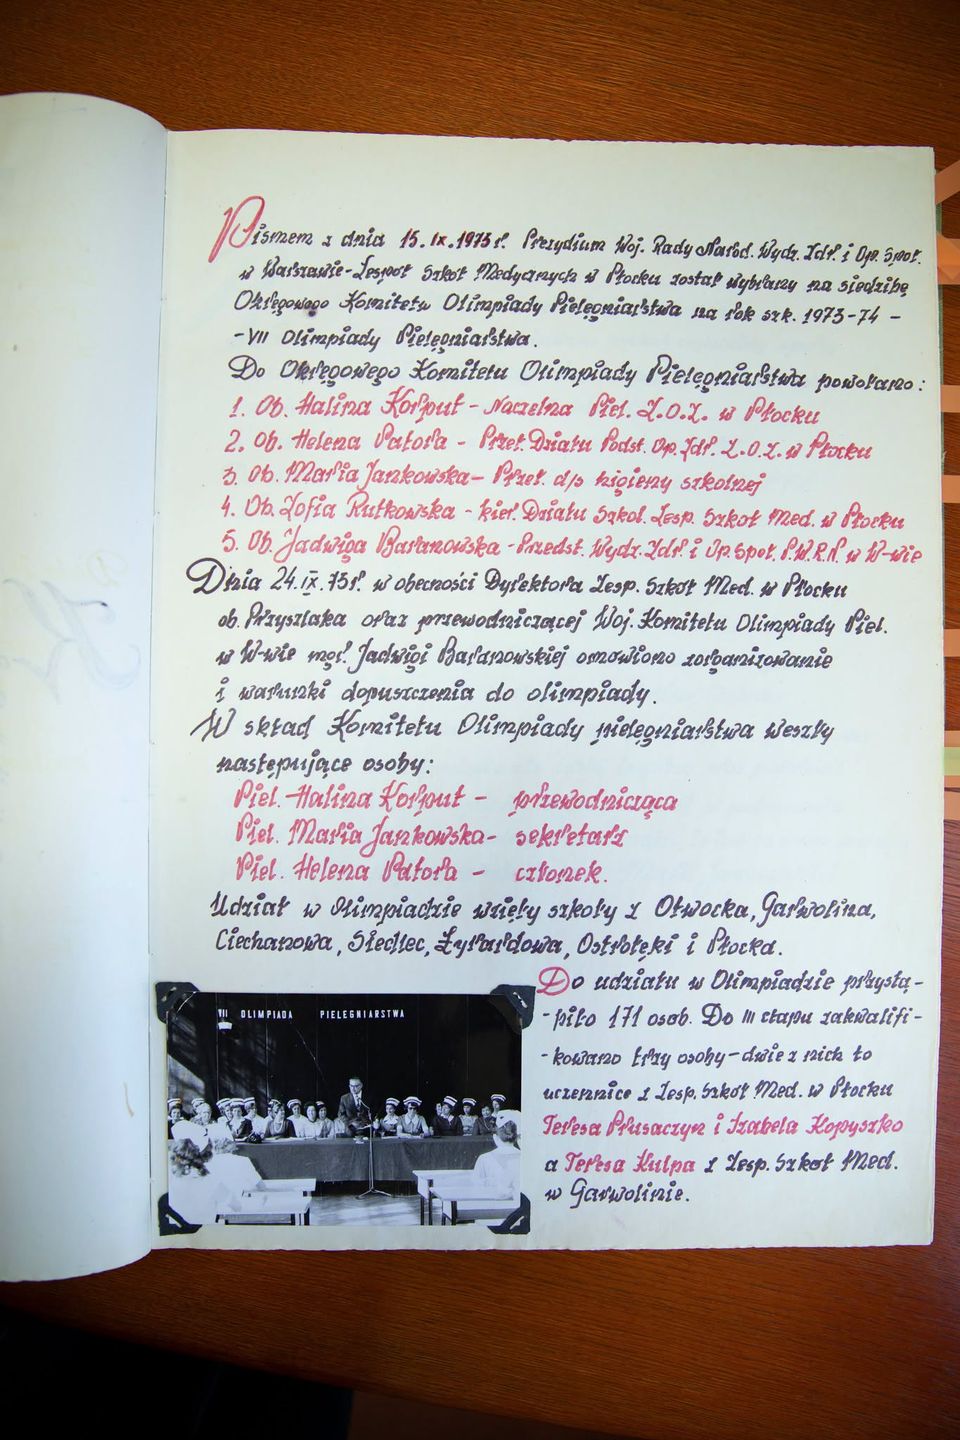 Pismem z dnia 15.IX.1973r. Prezydium Woj. Rady Narod. Wydz. Zdr. i Op. Społ.
w Warszawie-Zespół Szkół Medycznych w Płocku został wybrany na siedzibę
Okręgowego Komitetu Olimpiady Pielęgniarstwa na rok szk. 1973-74 -
- VII Olimpiady Pielęgniarstwa.
Do Okręgowego Komitetu Olimpiady Pielęgniarstwa powołano:
1. Ob. Halina Korput - Naczelna Piel. Z.O.Z. w Płocku
2. Ob. Helena Patora - Przeł. Działu Podst. Op. Zdr. Z.O.Z. w Płocku
3. Ob. Maria Jankowska - Przeł. d/s higieny szkolnej
4. Ob. Zofia Rutkowska - kier. Działu Szkol. Zesp. Szkół Med. w Płocku
5. Ob. Jadwiga Baranowska - Przedst. Wydz. Zdr. i Op. Społ. P.W.R.N. w W-wie
Dnia 24.IX.73r. w obecności Dyrektora Zesp. Szkół Med. w Płocku
ob. Przyszlaka oraz przewodniczącej Woj. Komitetu Olimpiady Piel.
w W-wie mgr. Jadwigi Baranowskiej omówiono zorganizowanie
i warunki dopuszczenia do olimpiady.
W skład Komitetu Olimpiady pielęgniarstwa weszły
następujące osoby:
Piel. Halina Korput - przewodnicząca
Piel. Maria Jankowska - sekretarz
Piel. Helena Patora - członek.
Udział w Olimpiadzie wzięły szkoły z Otwocka, Garwolina,
Ciechanowa, Siedlec, Żyrardowa, Ostrołęki i Płocka.
Do udziału w Olimpiadzie przystą-
- piło 171 osób. Do III etapu zakwalifi-
- kowano trzy osoby - dwie z nich to
uczennice z Zesp. Szkół Med. w Płocku
Teresa Prusaczyn i Izabela Kopyszko
a Teresa Kulpa z Zesp. Szkół Med.
w Garwolinie.
VII OLIMPIADA PIELĘGNIARSTWA